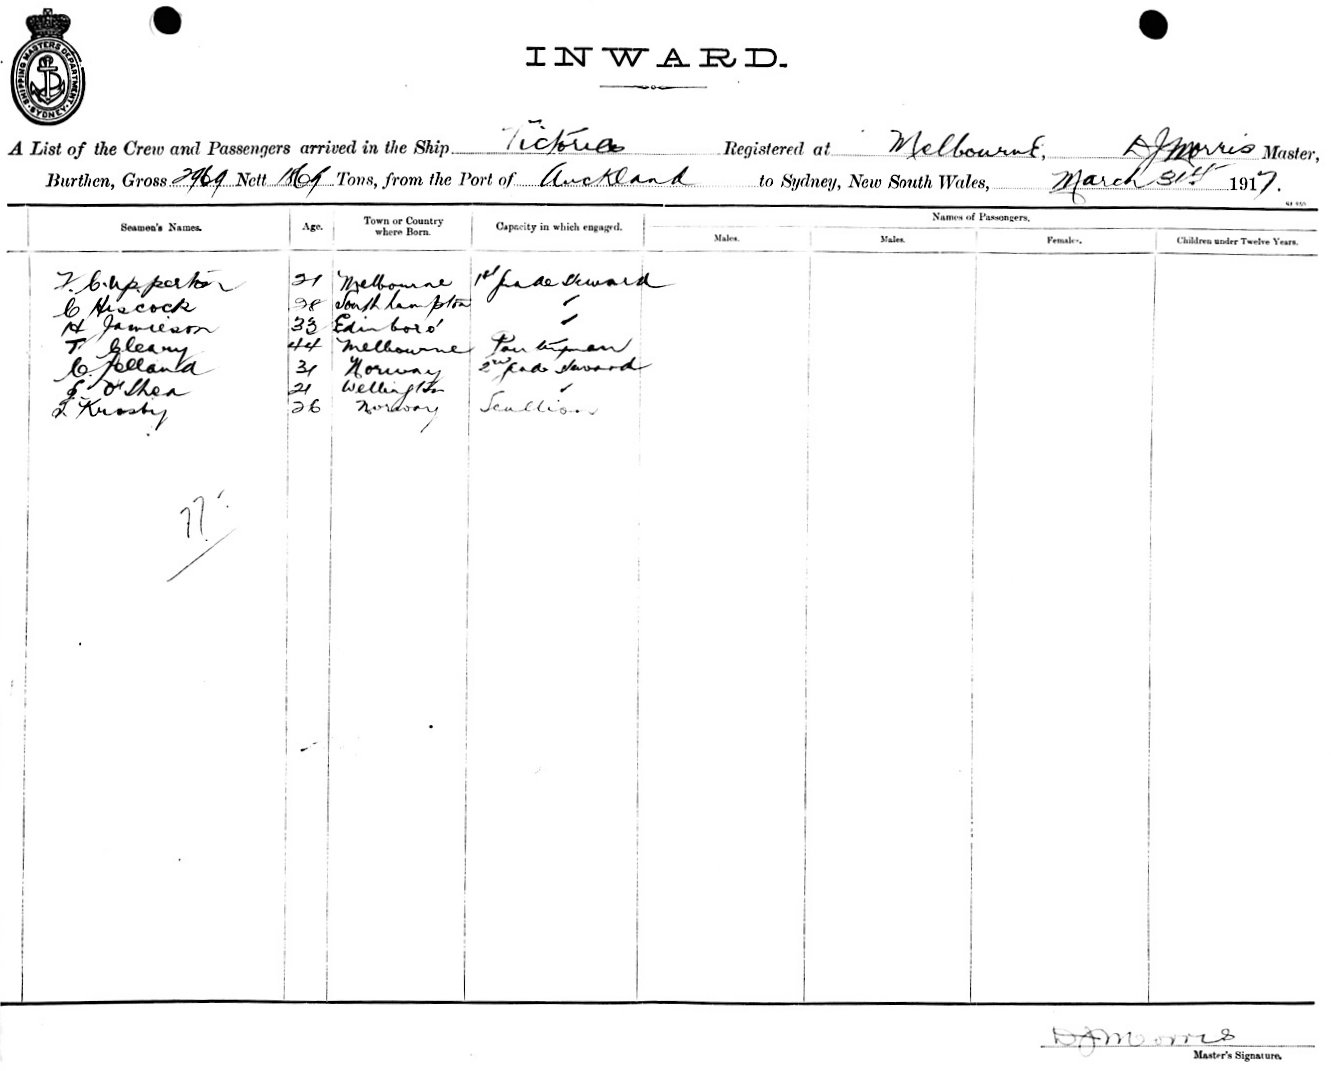 SHIPPING MASTERS DEPARTMENT SYDNEY
INWARD.
A List of the Crew and Passengers arrived in the Ship Victoria Registered at Melbourne, D J Morris Master,
Burthen, Gross 2969 Nett Tons, from the Port of Auckland to Sydney, New South Wales, March 31st 1917.
Seamen's Names. Age. Town or Country where Born. Capacity in which engaged. Names of Passengers.
Males. Males. Females. Children under Twelve Years.
21 Melbourne 1st grade Steward
C Hiscock 28 Southampton "
H Jamieson 33 Edinboro' "
T Cleary 44 Melbourne Pantryman
C Jelland 31 Norway 2nd grade Steward
O'Shea 21 Wellington "
Krosby 26 Norway Scullion
77
D J Morris
Master's Signature.